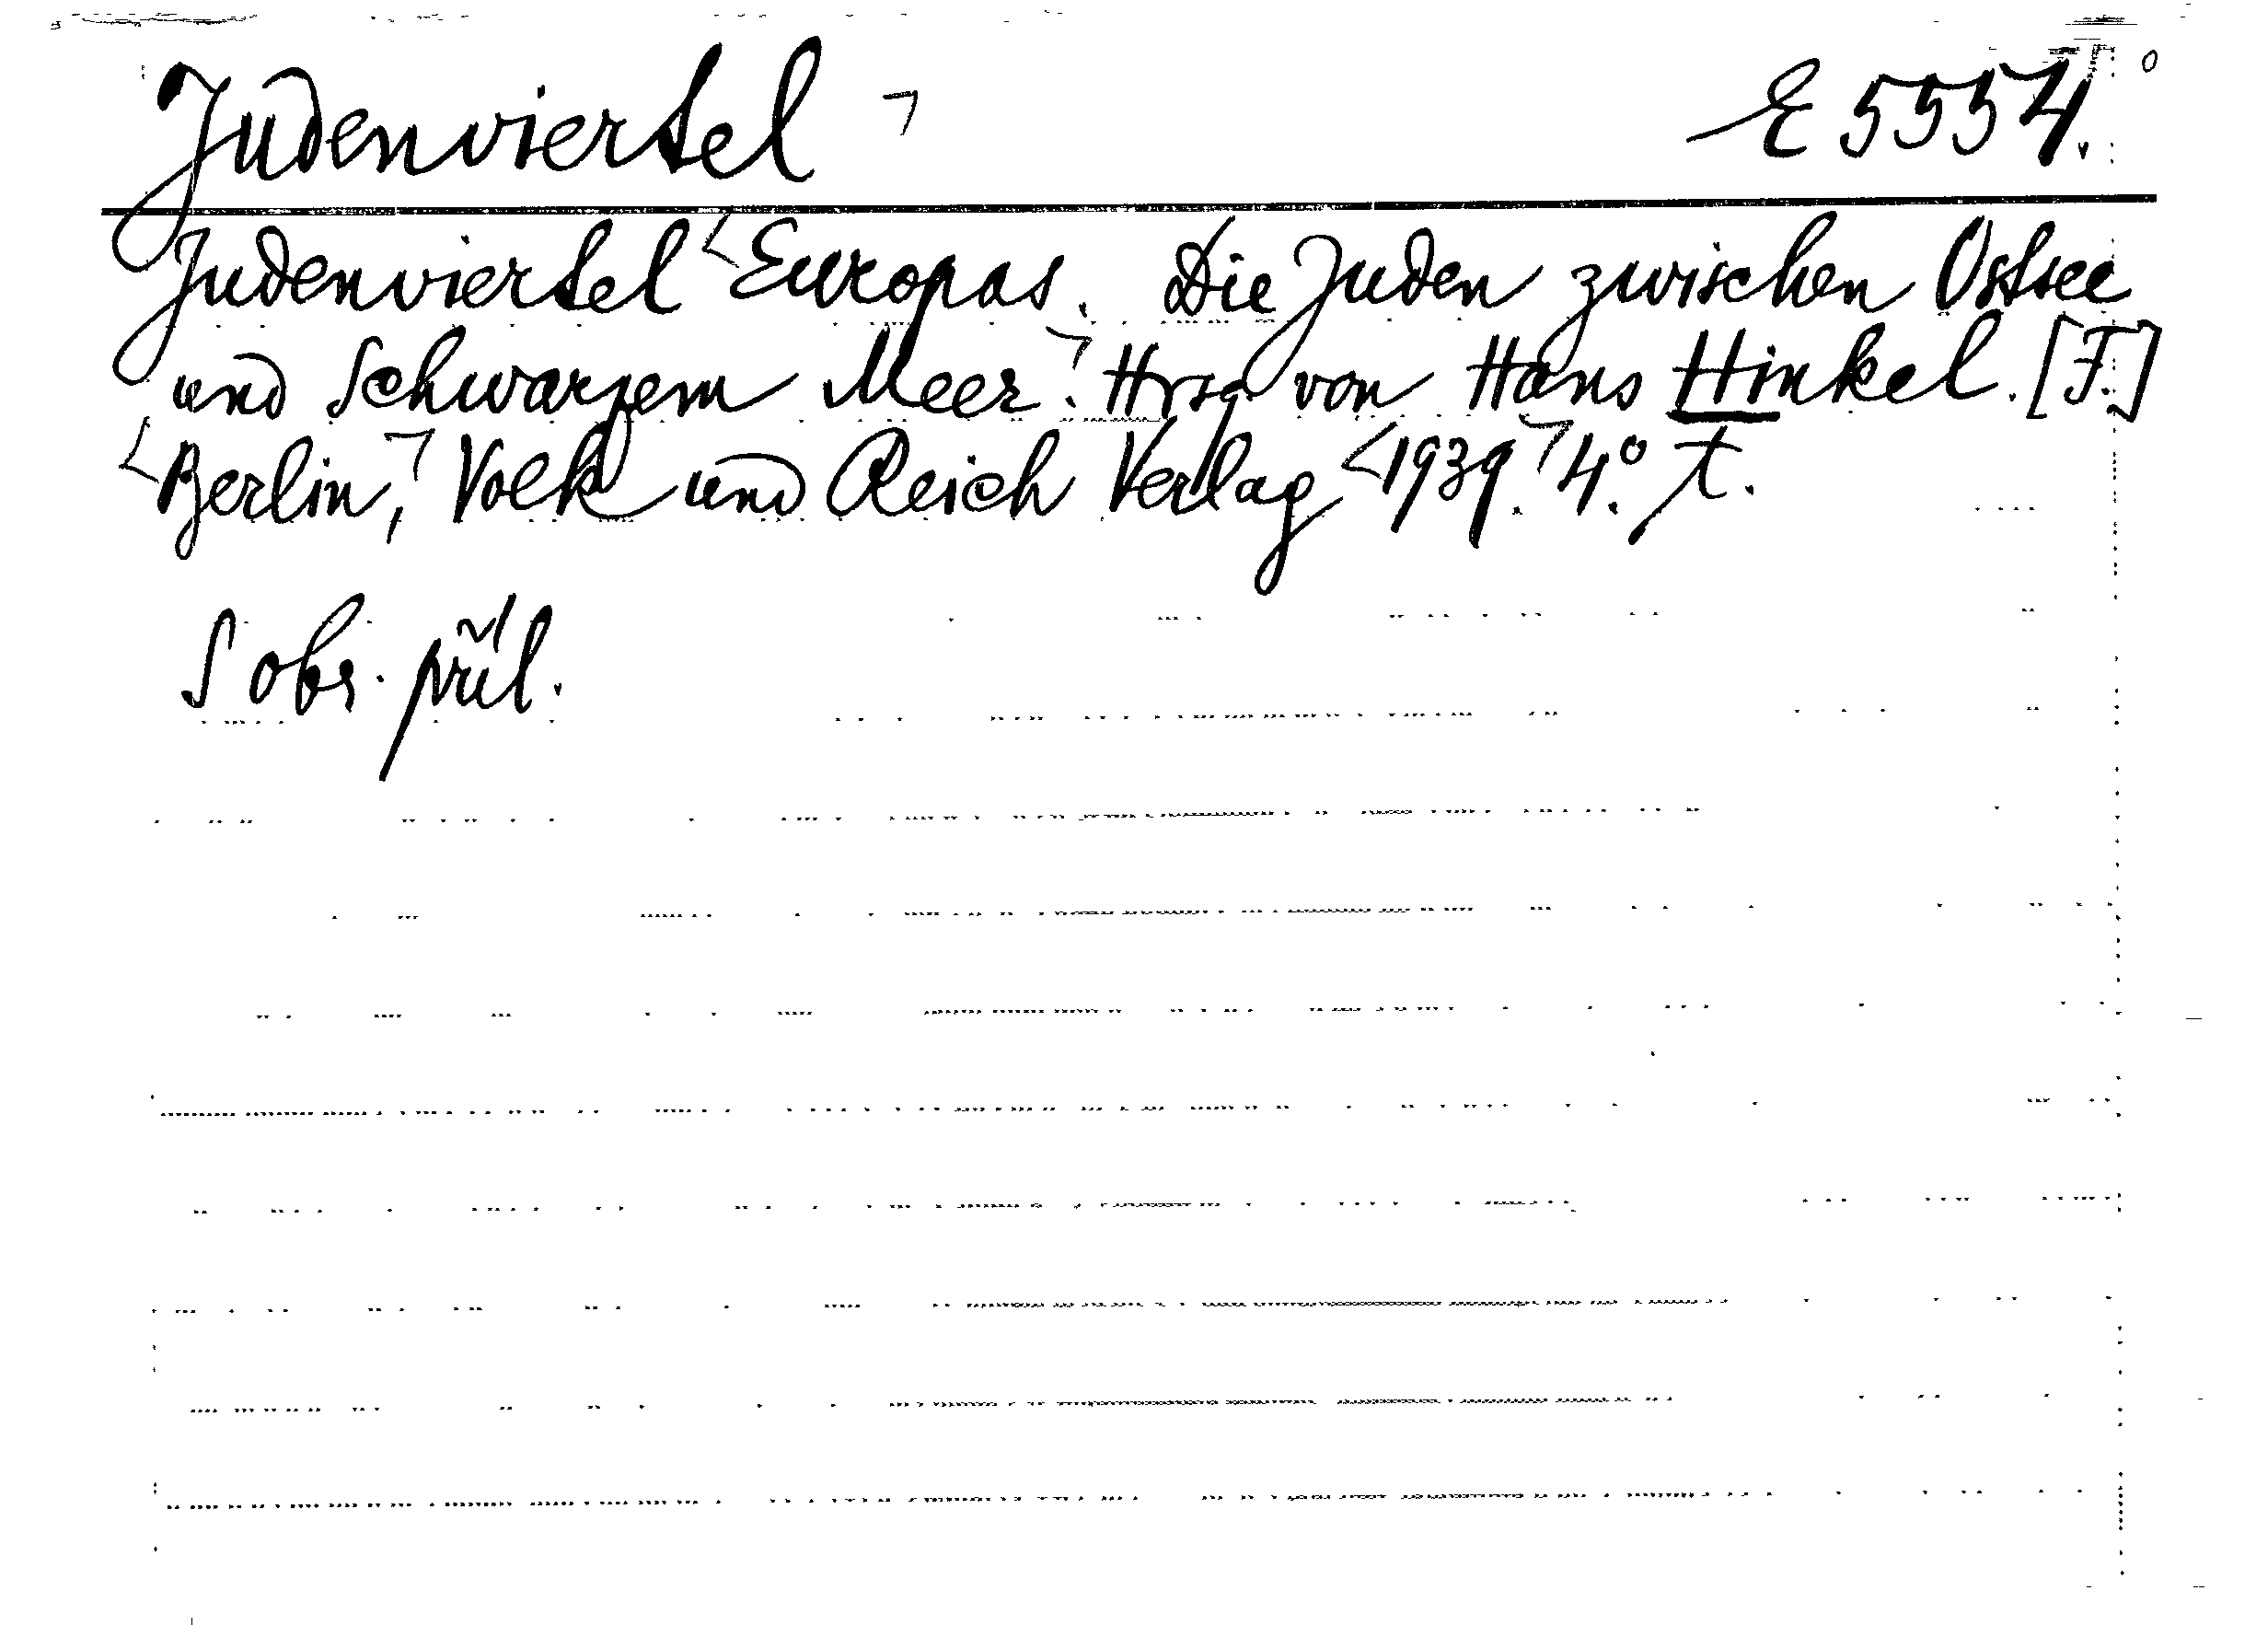 Judenviertel ㄱ E 5554.
Judenviertel <Europas. Die Juden zwischen Ostsee
und Schwarzem Meer.ㄱ Hrsg von Hans Hinkel. [F.]
<Berlin,ㄱ Volk und Reich Verlag <1939.ㄱ 4.° t.
S obr. příl.